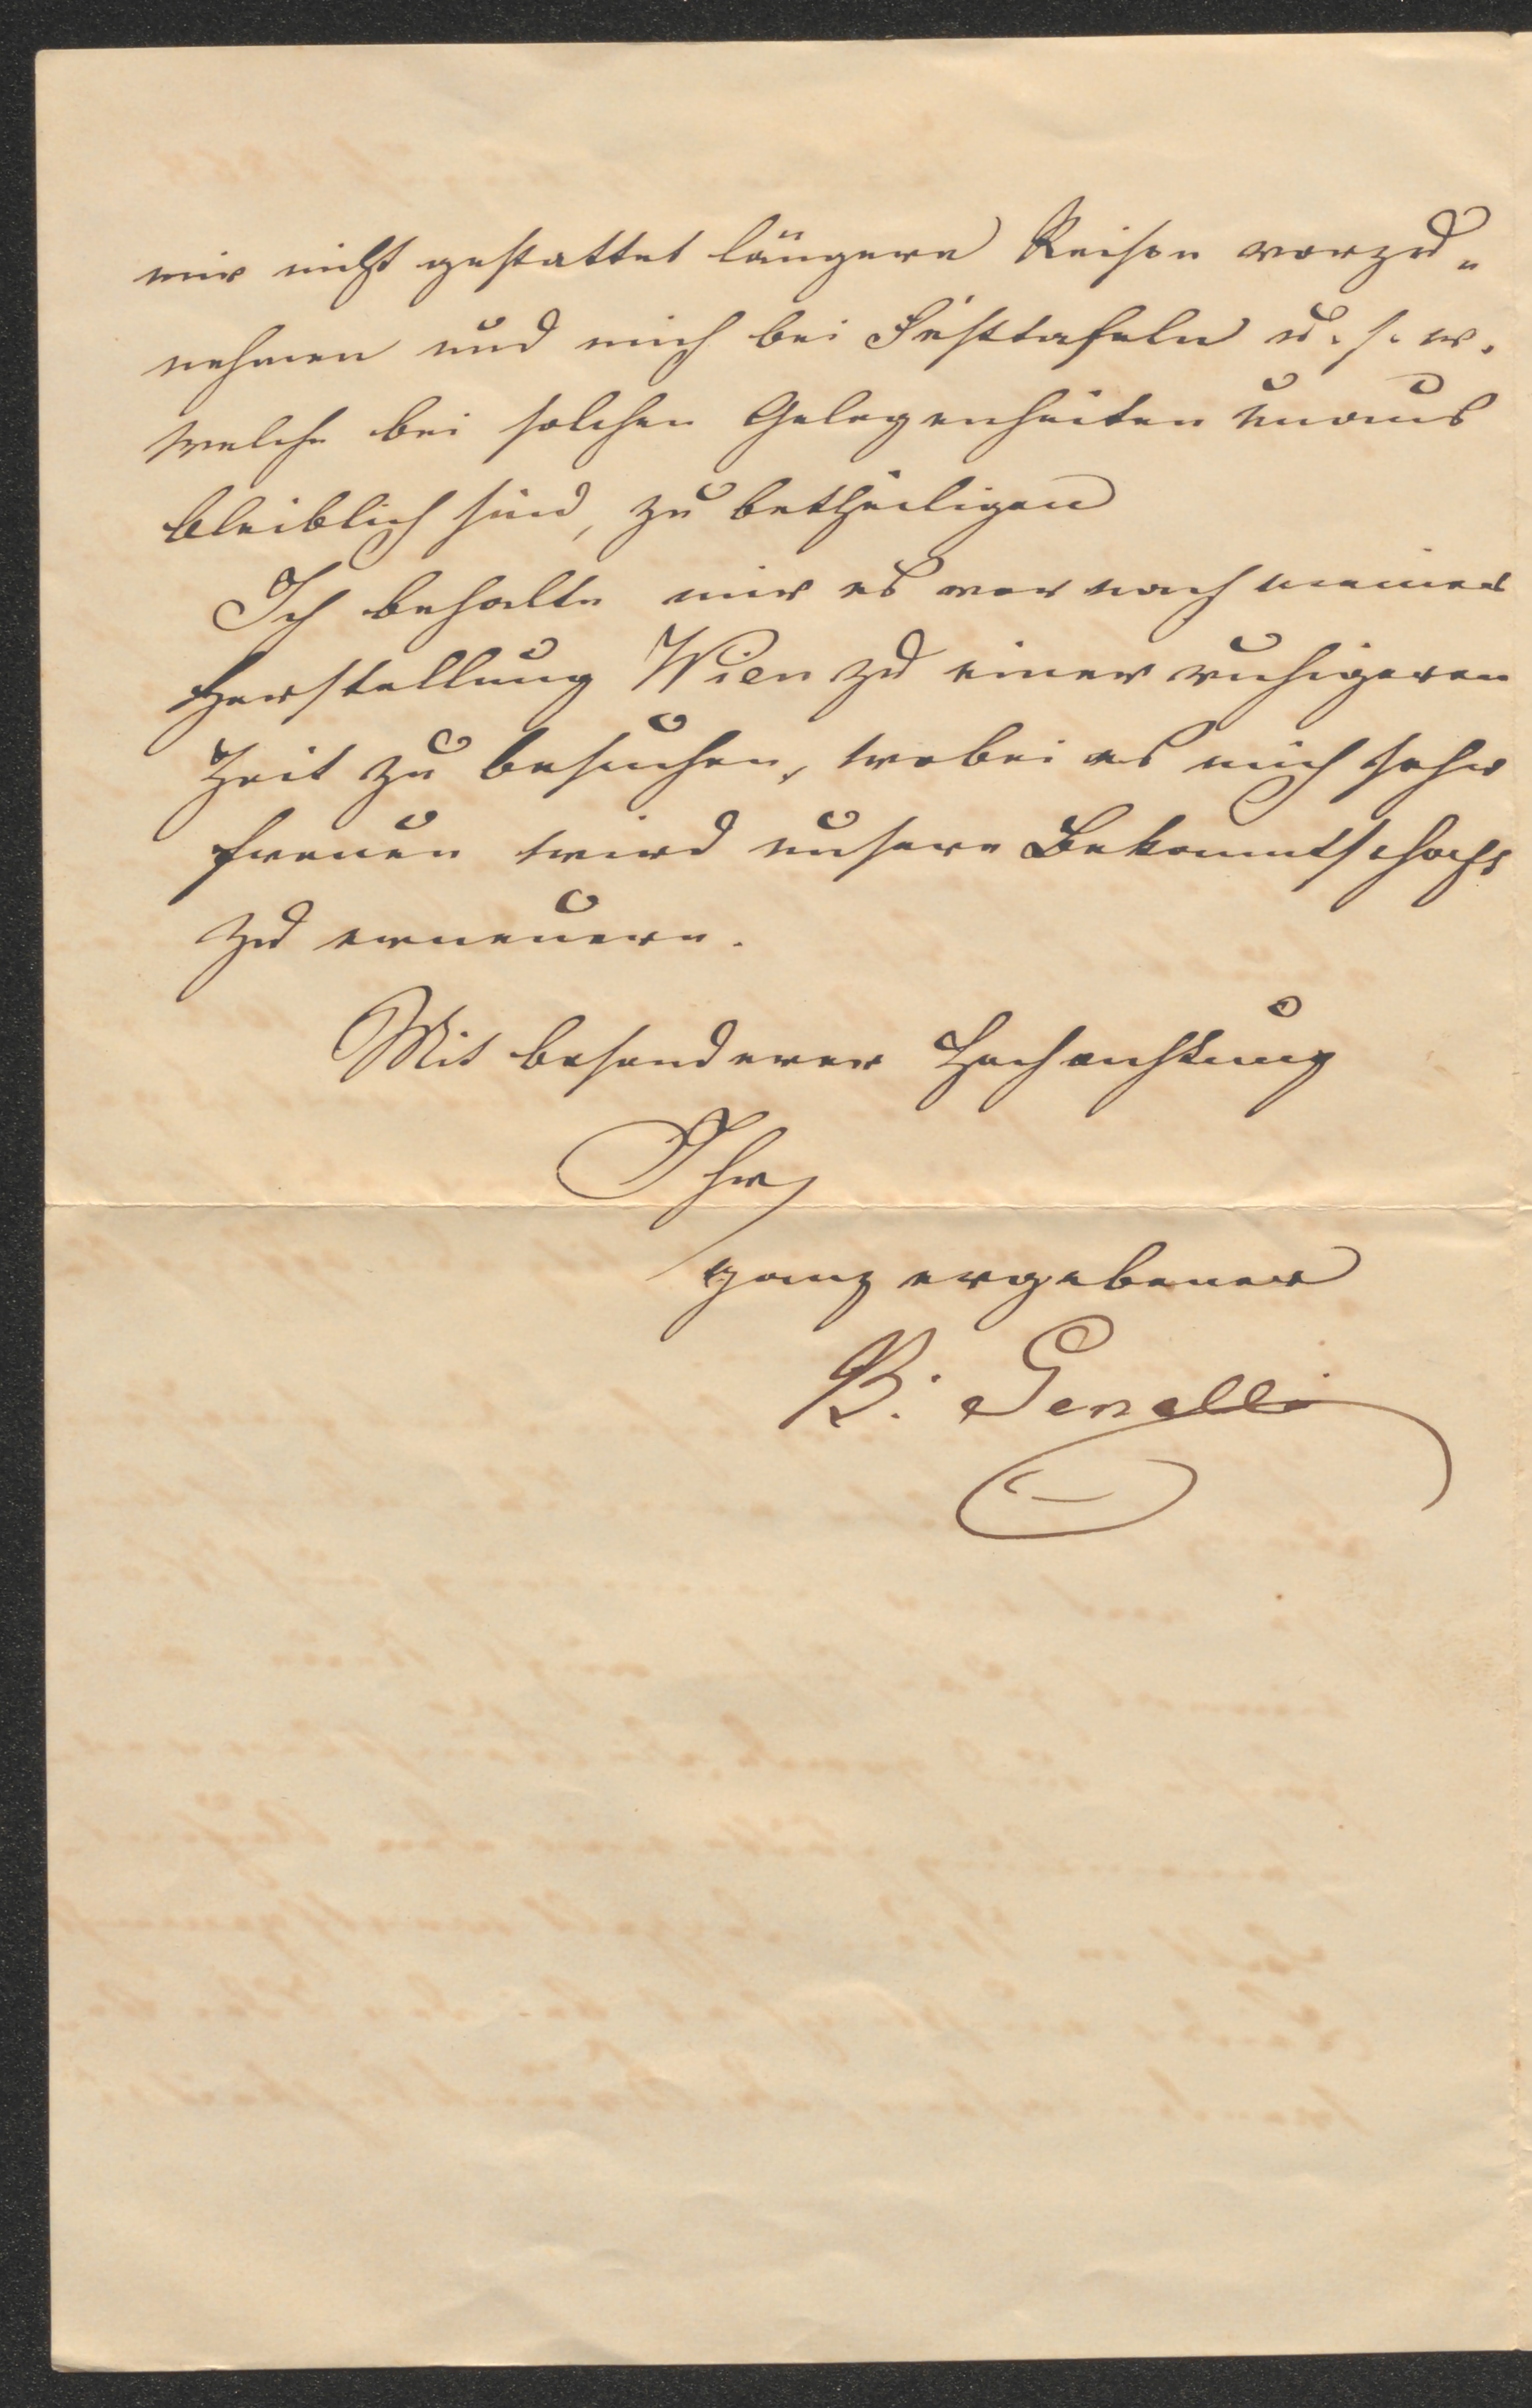 mir nicht gestattet längere Reisen vorzu„
nehmen und mich bei Festtafeln u. s. w.
welche bei solchen Gelegenheiten unaus
bleiblich sind, zu betheiligen
Ich behalte mir es vor nach meiner
Herstellung Wien zu einer ruhigeren
Zeit zu besuchen, wobei es mich sehr
freuen wird unsere Bekanntschaft
zu erneuern.
Mit besonderer Hochachtung
Ihr
ganz ergebener
B. Genelli